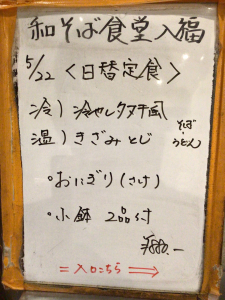 和そば食堂入福
5/22 <日替定食>
冷) 冷やしタヌキ風
温) きざみとじ
そば・うどん
・おにぎり(さけ)
・小鉢 2品付
¥880.-
= 入口こちら ⇒